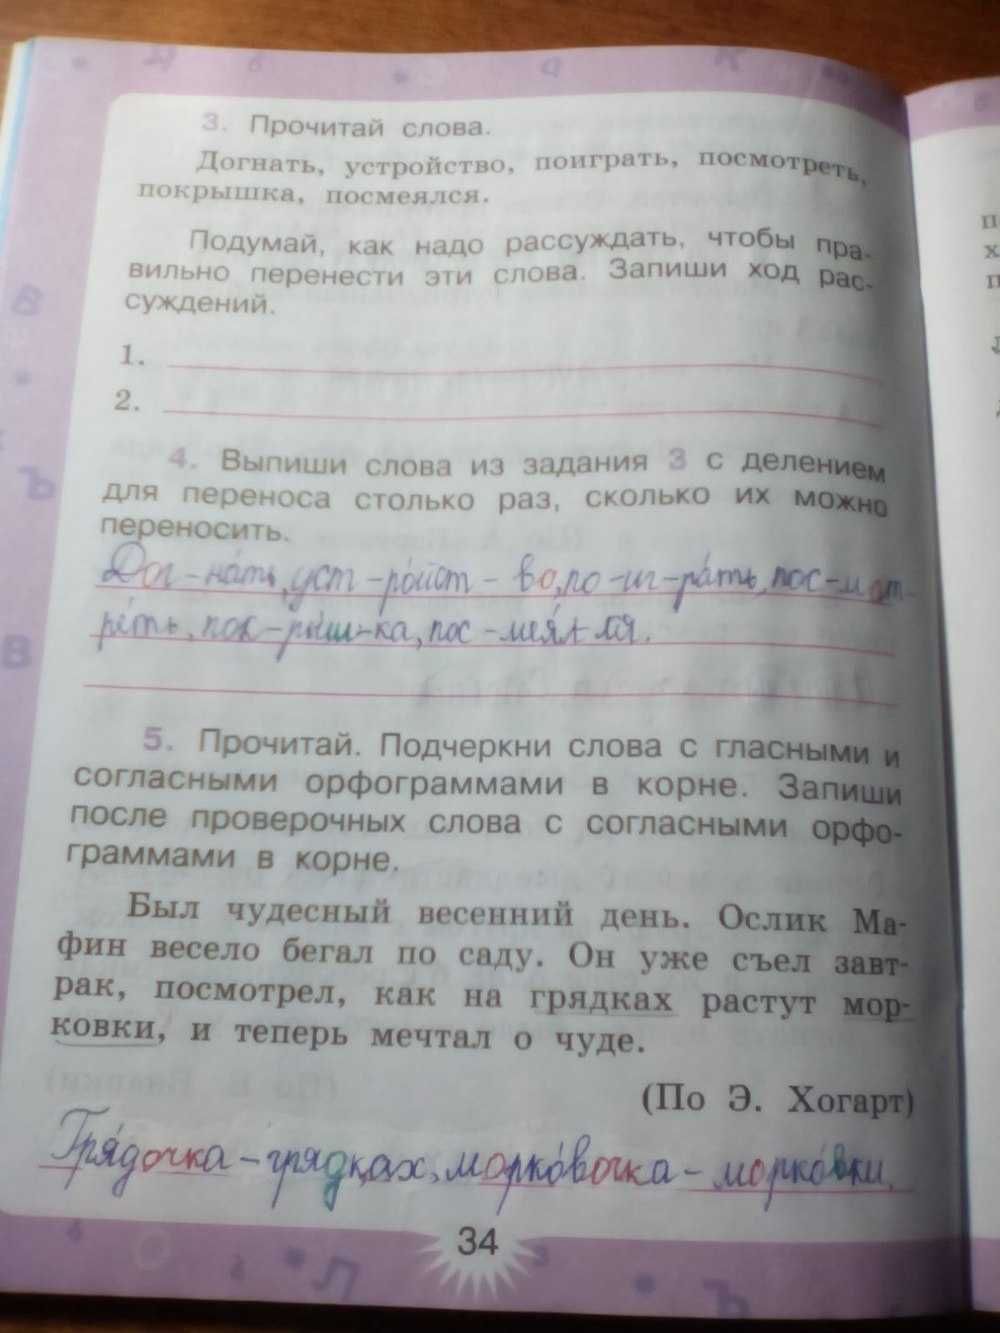 3. Прочитай слова.
Догнать, устройство, поиграть, посмотреть,
покрышка, посмеялся.
Подумай, как надо рассуждать, чтобы пра-
вильно перенести эти слова. Запиши ход рас-
суждений.
1.
2.
4. Выпиши слова из задания 3 с делением
для переноса столько раз, сколько их можно
переносить.
Дог-на́ть, уст-ро́йст-во, по-иг-ра́ть, пос-мот-
ре́ть, пок-ры́ш-ка, пос-мея́л-ся.
5. Прочитай. Подчеркни слова с гласными и
согласными орфограммами в корне. Запиши
после проверочных слова с согласными орфо-
граммами в корне.
Был чудесный весенний день. Ослик Ма-
фин весело бегал по саду. Он уже съел завт-
рак, посмотрел, как на грядках растут мор-
ковки, и теперь мечтал о чуде.
(По Э. Хогарт)
Гря́дочка – грядках, морко́вочка – морко́вки.
34